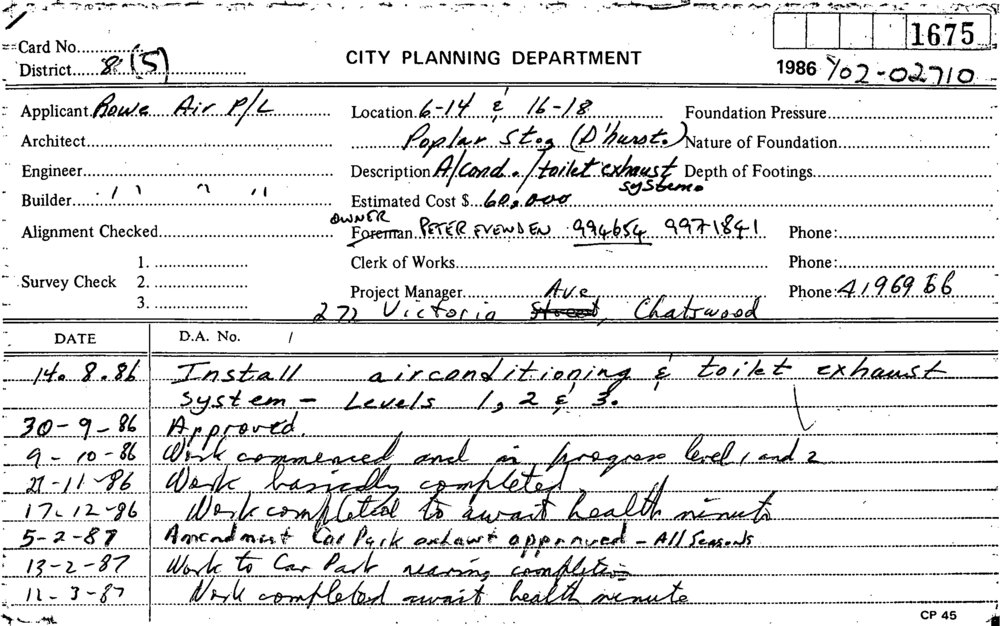 1675
Card No.
CITY PLANNING DEPARTMENT
District 8 (5)
1986 Y02-02710
Applicant Rowe Air P/L Location 6-14 & 16-18 Foundation Pressure
Architect Poplar St (D'hurst.) Nature of Foundation
Engineer Description A/Cond. / toilet exhaust Depth of Footings
systems
Builder '' '' '' Estimated Cost $ 60,000
OWNER
Alignment Checked Foreman PETER EVENDEN 994654 9971841 Phone:
1. Clerk of Works Phone:
Survey Check 2.
Project Manager Ave Phone: 4196966
3.
272 Victoria Street, Chatswood
DATE D.A. No. /
14.8.86 Install airconditioning & toilet exhaust
System - Levels 1, 2 & 3.
30-9-86 Approved.
9-10-86 Work commenced and in progress level 1 and 2
21-11-86 Work basically completed.
17-12-86 Work completed to await health minute
5-2-87 Amendment Car Park exhaust approved - All Seasons
13-2-87 Work to Car Park nearing completion
12-3-87 Work completed await health minute
CP 45